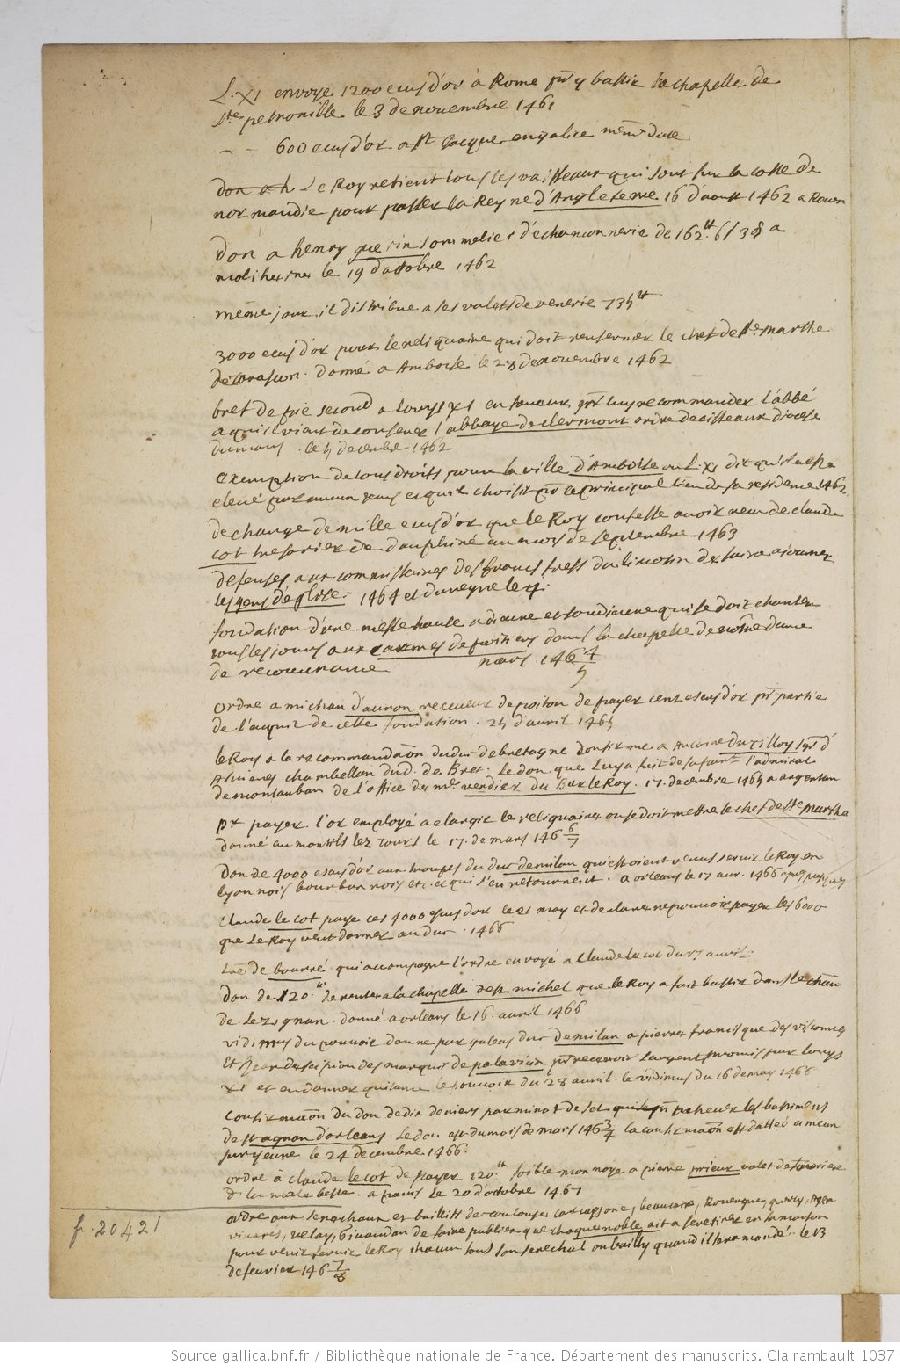 L. XI envoye 1200 ecus d'or à Rome pr y bastir la chapelle de
Ste petronille le 3 de novembre 1461
- - 600 ecus d'or a St Jacque en galice mesme date
don a h Le Roy retient tous les vaisseaux qui sont sur la coste de
normandie pour passer la Reyne d'Angleterre 16 d'aout 1462 a Rouen
Don a henry guerin sommelier d'echanconnerie de 162tt 6s 3d a
moliherne le 19 d'octobre 1462
mesme jour il distribue a ses valets de venerie 735tt
3000 ecus d'or pour le reliquaire qui doit renfermer le chef de Ste marthe
de tarascon. donné a Amboise le 28 de novembre 1462
bref de pie second a louys XI en faveur pr luy recommander l'abbé
a qui il vient de conferer l'abbaye de clermont ordre de cisteaux diocese
du mans. le 5 decembre 1462
Exemption de tous droits pour la ville d'Amboise ou L. XI dit qu'il a esté
elevé et qu'il choisit pr le principal lieu de sa residence 1462
decharge de mille ecus d'or que le Roy confesse avoir receu de claude
cot tresorier de dauphiné au mois de septembre 1463
defenses aux commissaires des francs fiefs du limosin de faire ajourner
les gens d'eglise. 1464
fondation d'une messe haute a diacre et soudiacre qui se doit chanter
tous les jours aux carmes de poitiers dans la chapelle de nostre dame
de recouvrance mars 1464/5
ordre a michau dauron receveur de poitou de payer cent ecus d'or pr partie
de l'acquit de cette fondation. 25 d'avril 1465
le Roy a la recommandaon du duc de bretagne confirme a Antoine du Tilloy sgr d'
chambellan du d. de Bret. le don que luy a fait defunt l'admiral
de montauban de l'office de mre verdier du Bur le Roy. 17 decembre 1465 a argentan
pr payer l'or employé a elargir le reliquaire ou se doit mettre le chef de Ste marthe
donné au montils lez tours le 17 de mars 1466/7
Don de 4000 ecus d'or aux troupes du duc de milan qui estoient venus servir le Roy en
lyonnois bourbonnois etc. et qui s'en retournent. a orleans le avr. 1466
claude le cot paye ces 4000 ecus d'or le 21 may et declare ne pouvoir payer les 6000
que le Roy veut donner au duc. 1466
Lre de bourré qui accompagne l'ordre envoyé a claude le cot du avril
Don de 120tt de rente a la chapelle de St michel que le Roy a fait bastir dans le chau
de Lezignan. donné a orleans le 16 avril 1466
vidimus du pouvoir donne par galeas duc de milan a pierre francisque des viscomtes
et Jean des marquis de palavicin pr recevoir l'argent promis par louys
XI et en donner quitance le pouvoir du 28 avril le vidimus du 16 de may 1466
Confirmaon du don de dix deniers par minot de sel pr achever les bastimens
de St agnan d'orleans. Le don est du mois de mars 1463/4 la confirmaon est dattée a meun
sur yeure le 24 decembre 1466
ordre à claude le cot de payer 120tt foible monnoye a pierre prieux valet de fourriere
de a paris le 20 d'octobre 1467
ordre aux seneschaux et baillifs de toulouse carcassone, beaucaire, Rouergue, quercy, agen
vivarez, velay, Gevaudan de faire publier que chaque noble ait a se retirer en sa maison
pour venir servir le Roy chacun sous son senechal ou bailly quand il sera mandé. le 13
de fevrier 1467/8
f. 20421
Source gallica.bnf.fr / Bibliothèque nationale de France. Département des manuscrits. Clairambault 1037